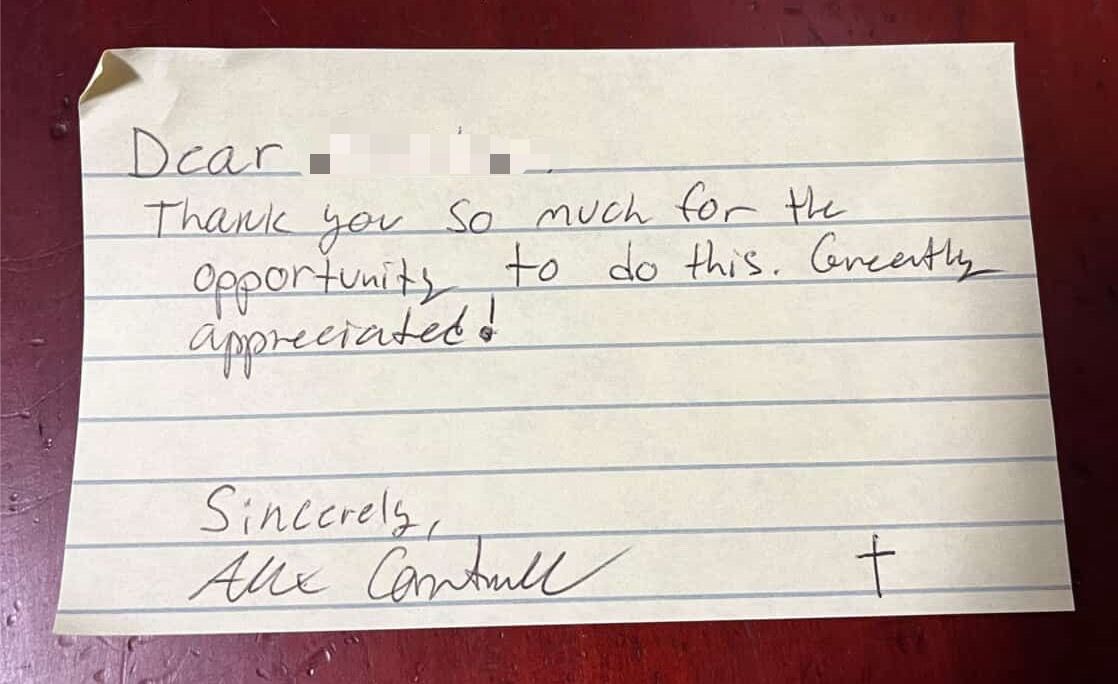 Dear
Thank you so much for the
opportunity to do this. Greatly
appreciated!
Sincerely,
Alex